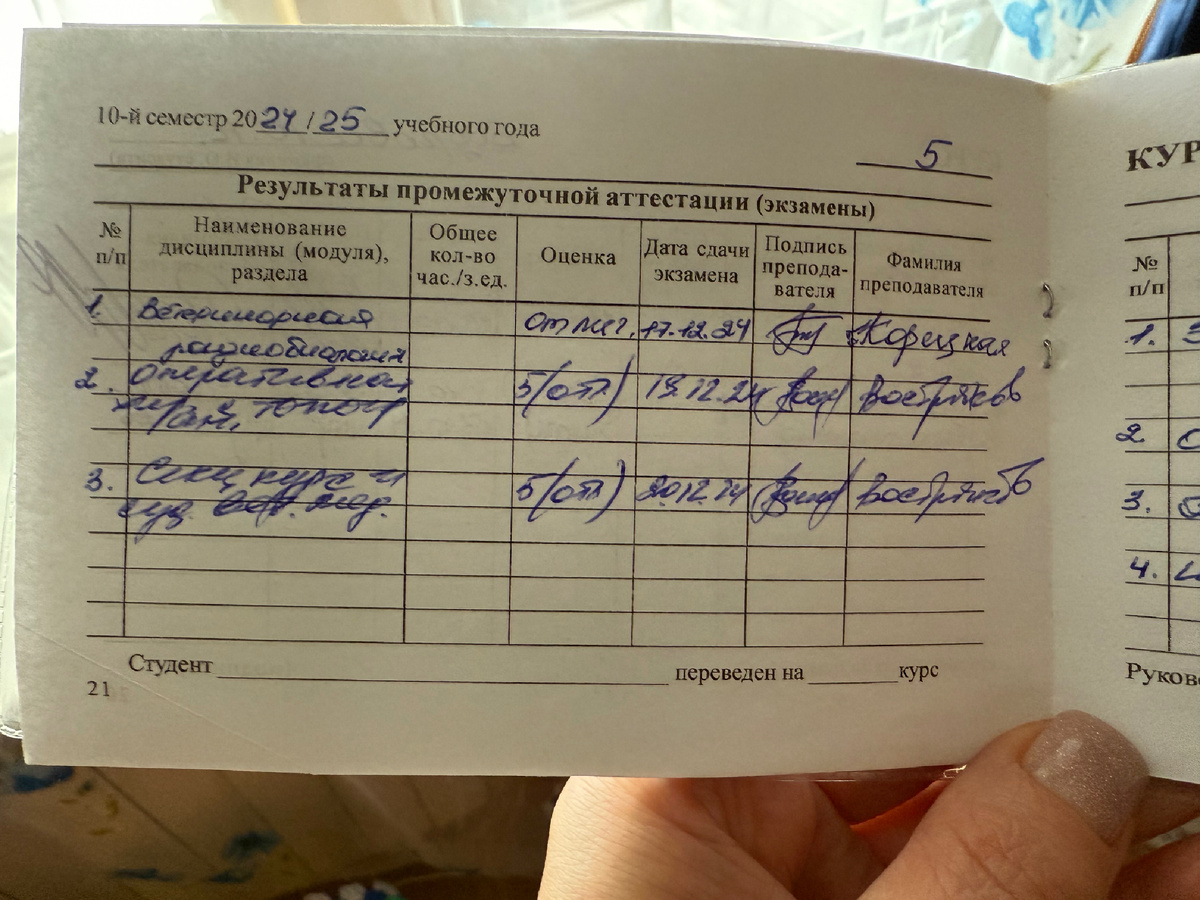 10-й семестр 2024/25 учебного года
5
Результаты промежуточной аттестации (экзамены)
№ п/п Наименование дисциплины (модуля), раздела Общее кол-во час./з.ед. Оценка Дата сдачи экзамена Подпись преподавателя Фамилия преподавателя
1. Ветеринарная отлич. 17.12.24 Корецкая
радиобиология
2. Оперативная 5(отл) 19.12.24 Востряков
топогр
3. Секц курс и 5(отл) 20.12.24 Востряков
суд. вет. мед.
Студент переведен на курс
21
КУР
№ п/п
1. З
2. О
3.
4.
Руково